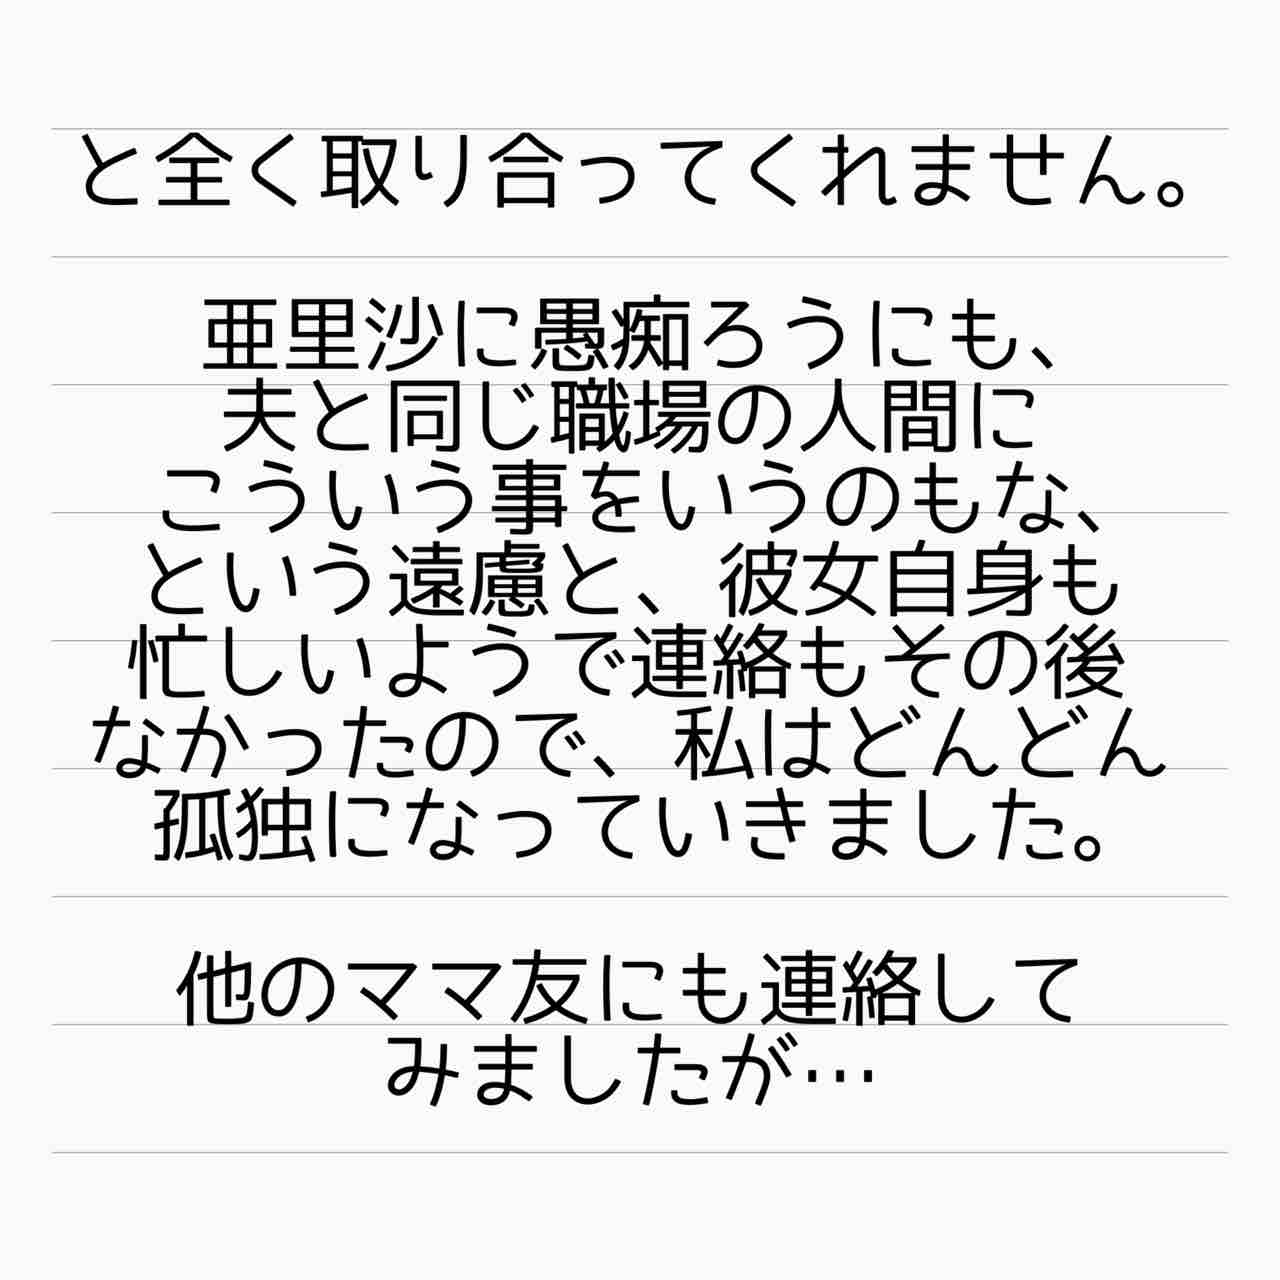 と全く取り合ってくれません。
亜里沙に愚痴ろうにも、
夫と同じ職場の人間に
こういう事をいうのもな、
という遠慮と、彼女自身も
忙しいようで連絡もその後
なかったので、私はどんどん
孤独になっていきました。
他のママ友にも連絡して
みましたが…